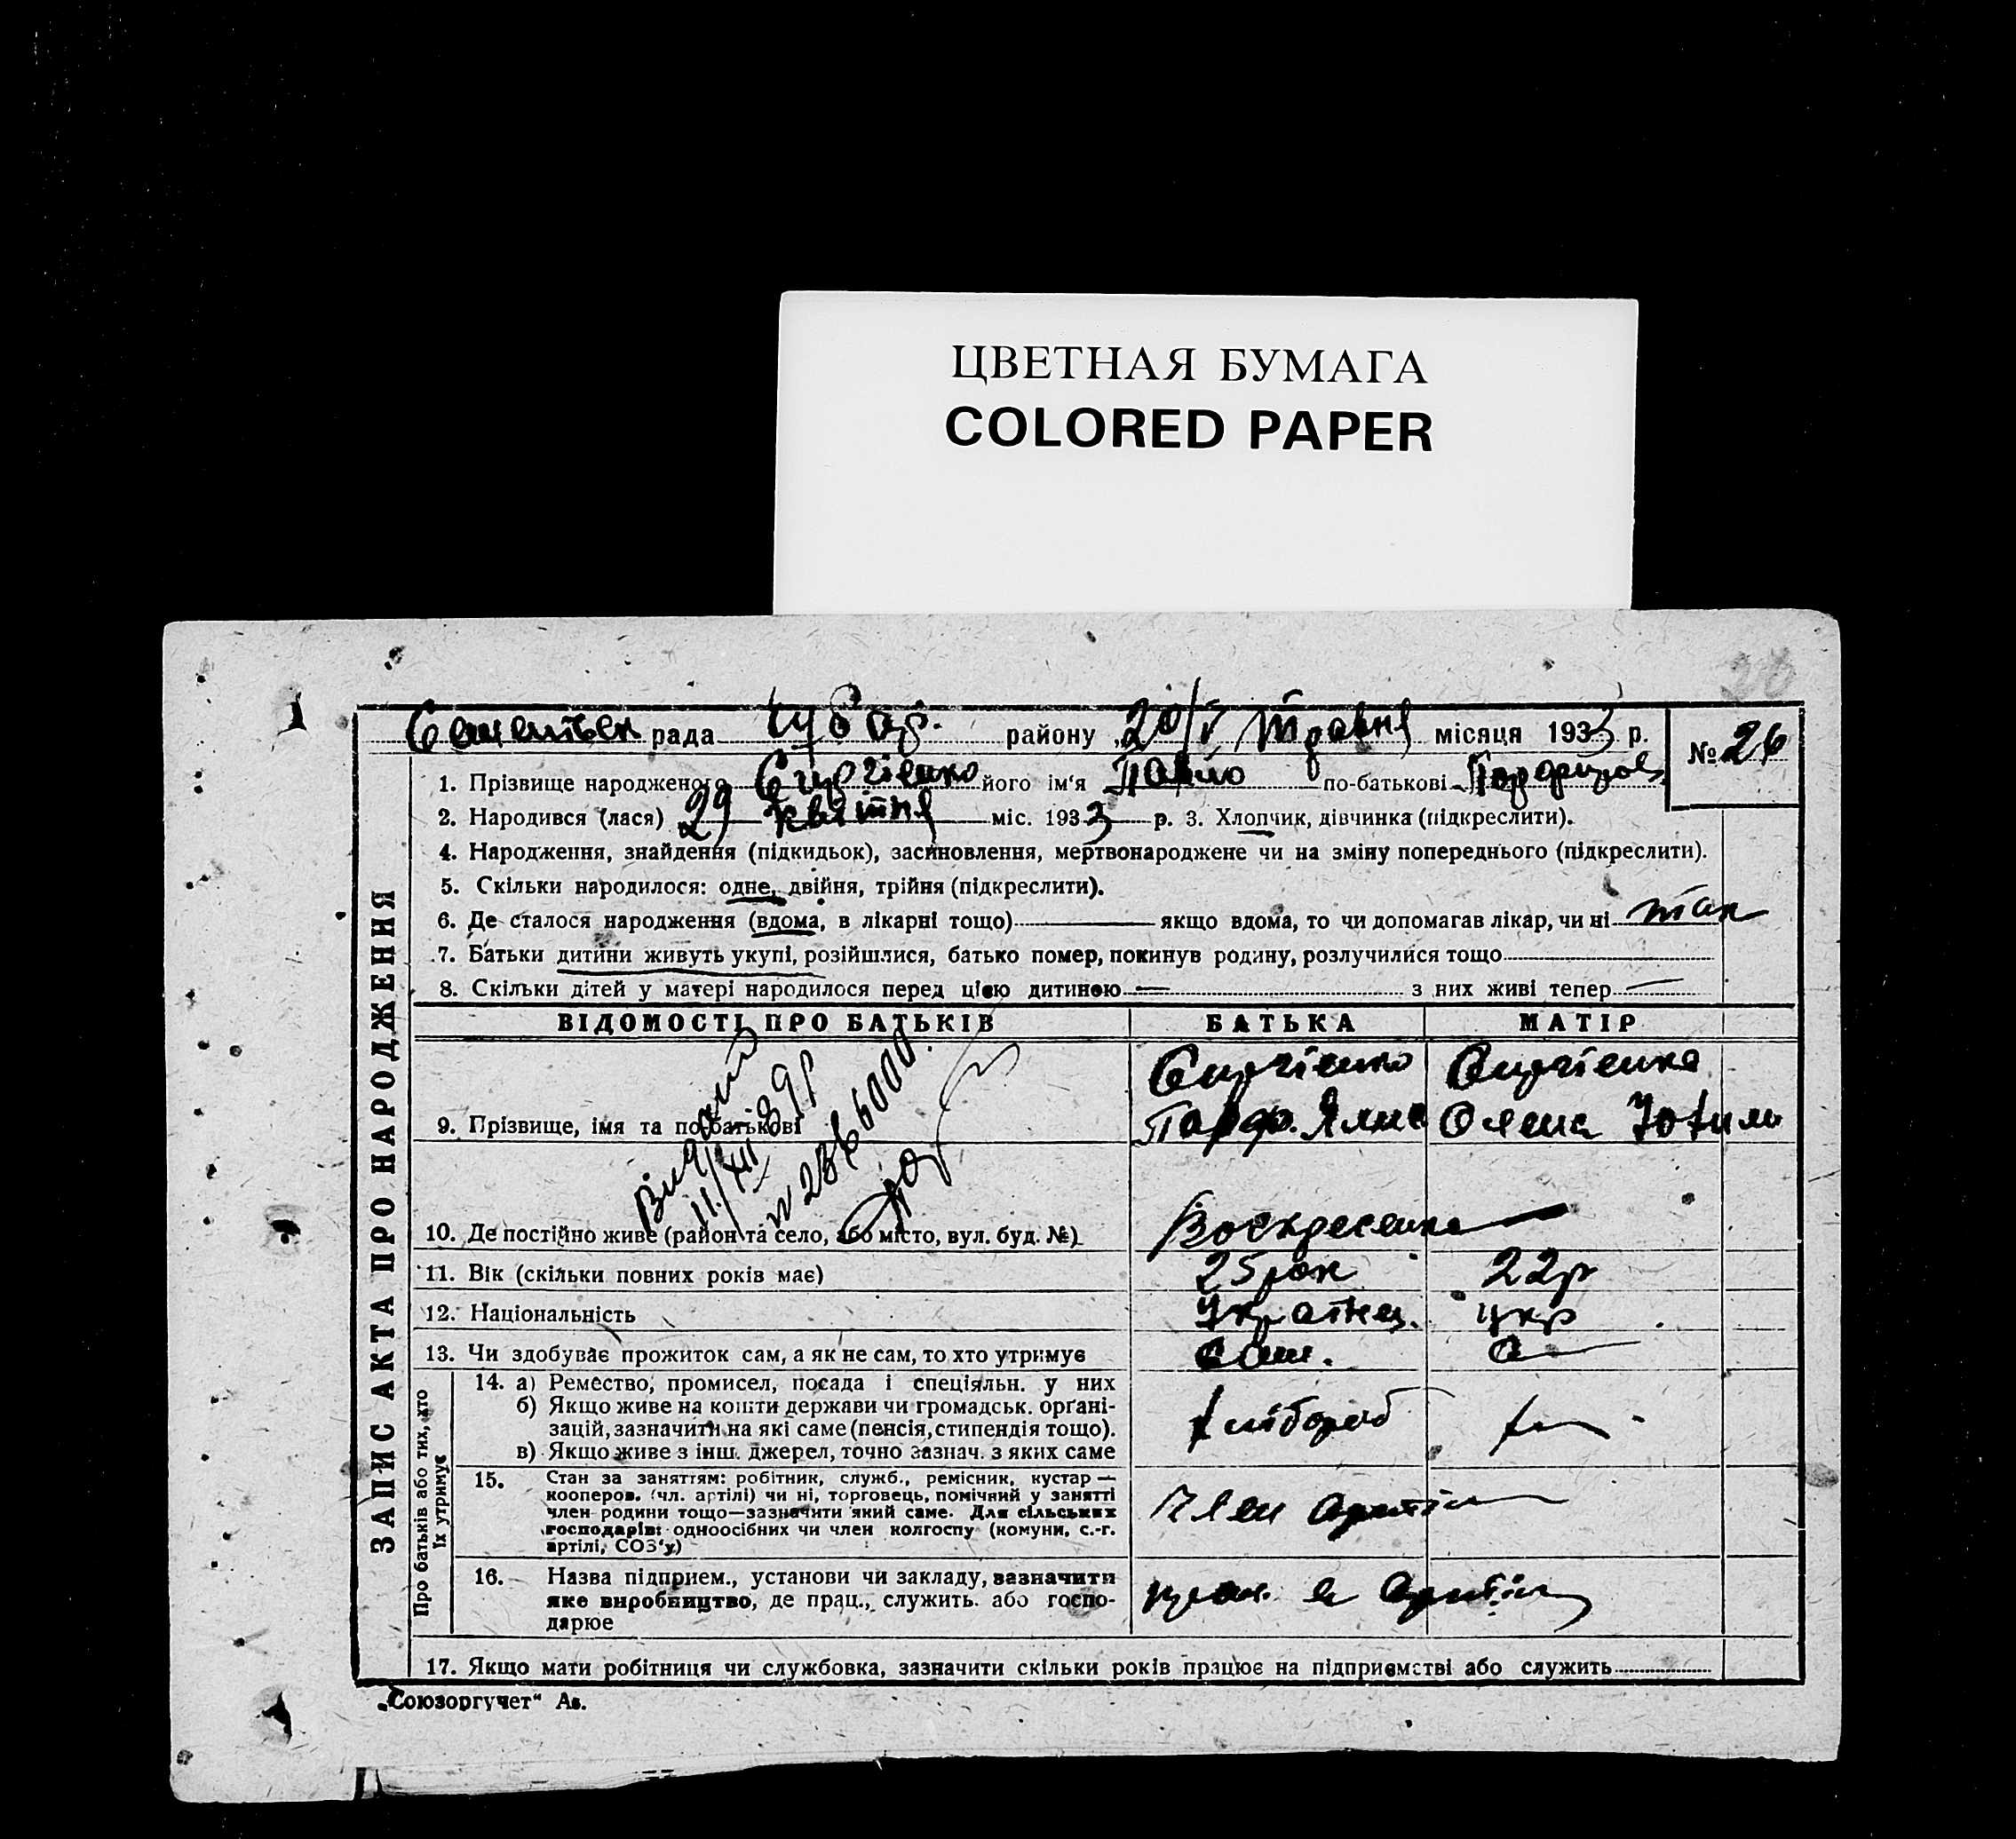 ЦВЕТНАЯ БУМАГА
COLORED PAPER
26
рада района району „20/V Травня місяця 1933 р.
№ 26
1. Прізвище народженого його ім‘я Павло по-батькові
2. Народився (лася) 29 квітня міс. 1933 р. 3. Хлопчик, дівчинка (підкреслити).
4. Народження, знайдення (підкидьок), засиновлення, мертвонароджене чи на зміну попереднього (підкреслити).
5. Скільки народилося: одне, двійня, трійня (підкреслити).
6. Де сталося народження (вдома, в лікарні тощо) — якщо вдома, то чи допомагав лікар, чи ні так
7. Батьки дитини живуть укупі, розійшлися, батько помер, покинув родину, розлучилися тощо
8. Скільки дітей у матері народилося перед цією дитиною — з них живі тепер —
ЗАПИС АКТА ПРО НАРОДЖЕННЯ
ВІДОМОСТІ ПРО БАТЬКІВ БАТЬКА МАТІР
9. Прізвище, імя та по-батькові
Парф. Олена
10. Де постійно живе (район та село, або місто, вул. буд. №) Воскресенка
11. Вік (скільки повних років має) 25 рок 22 р
12. Національність Українец. укр
13. Чи здобуває прожиток сам, а як не сам, то хто утримує сам.
Про батьків або тих, хто їх утримує
14. а) Ремество, промисел, посада і спеціяльн. у них
б) Якщо живе на кошти держави чи громадськ. орґані-
зацій, зазначити на які саме (пенсія, стипендія тощо).
в) Якщо живе з інш. джерел, точно зазнач. з яких саме
хлібороб
15. Стан за заняттям: робітник, служб., ремісник, кустар —
кооперов. (чл. артілі) чи ні, торговець, помічний у занятті
член родини тощо—зазначити який саме. Для сільських
господарів: одноосібних чи член колгоспу (комуни, с.-г.
артілі, СОЗ‘у)
Член Артіл
16. Назва підприєм., установи чи закладу, зазначити
яке виробництво, де прац., служить. або госпо-
дарює
17. Якщо мати робітниця чи службовка, зазначити скільки років працює на підприємстві або служить
„Союзоргучет“ Ав.